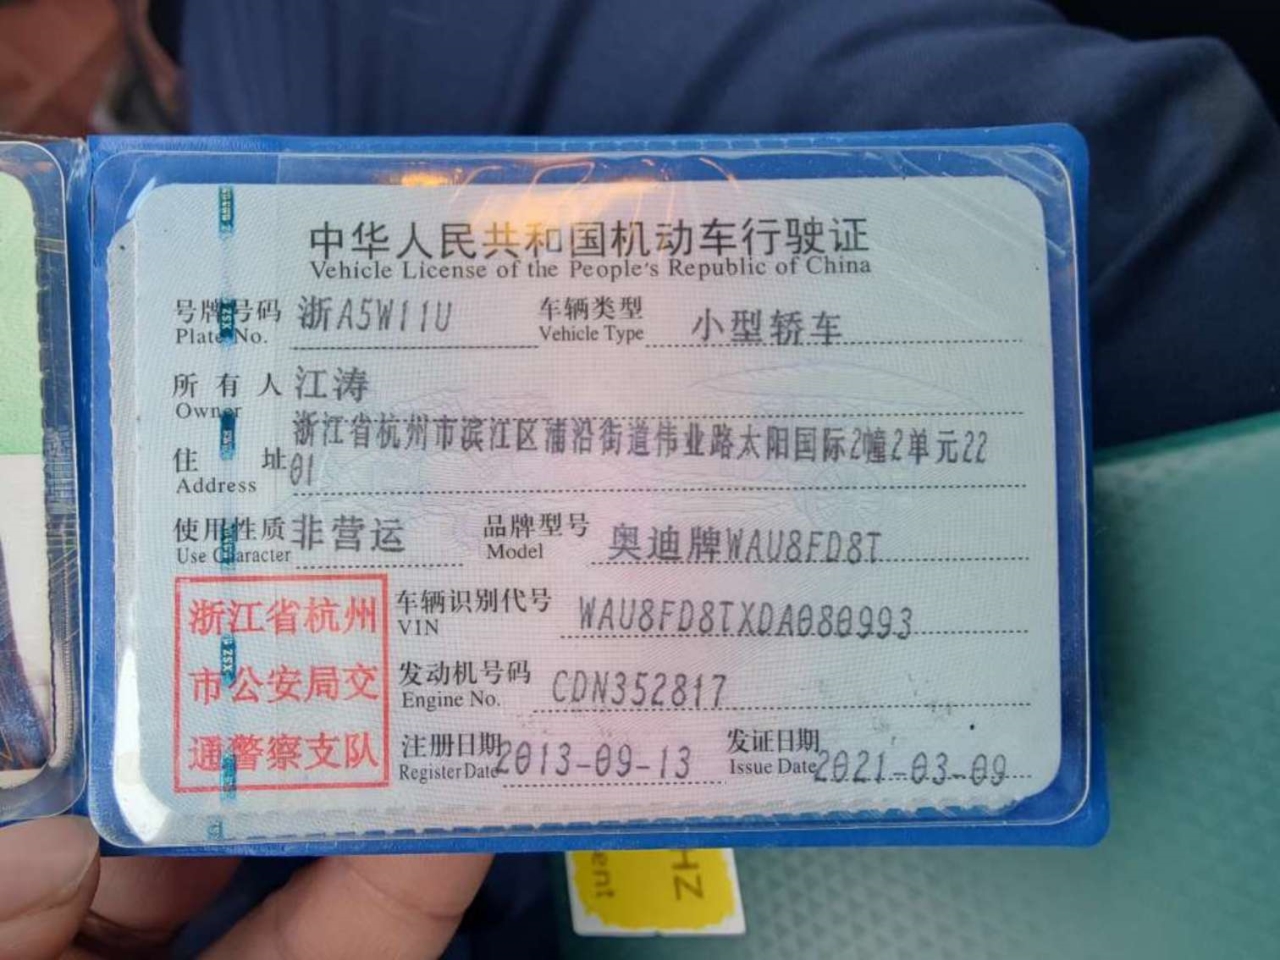 中华人民共和国机动车行驶证
Vehicle License of the People's Republic of China
号牌号码 浙A5W11U 车辆类型 小型轿车
Plate No. Vehicle Type
所有人 江涛
Owner
浙江省杭州市滨江区浦沿街道伟业路太阳国际2幢2单元22
住址 01
Address
使用性质 非营运 品牌型号 奥迪牌WAU8FD8T
Use Character Model
浙江省杭州
市公安局交
通警察支队
车辆识别代号 WAU8FD8TXDA080993
VIN
发动机号码 CDN352817
Engine No.
注册日期 2013-09-13 发证日期 2021-03-09
Register Date Issue Date
XSZ
XSZ
HZ
ent